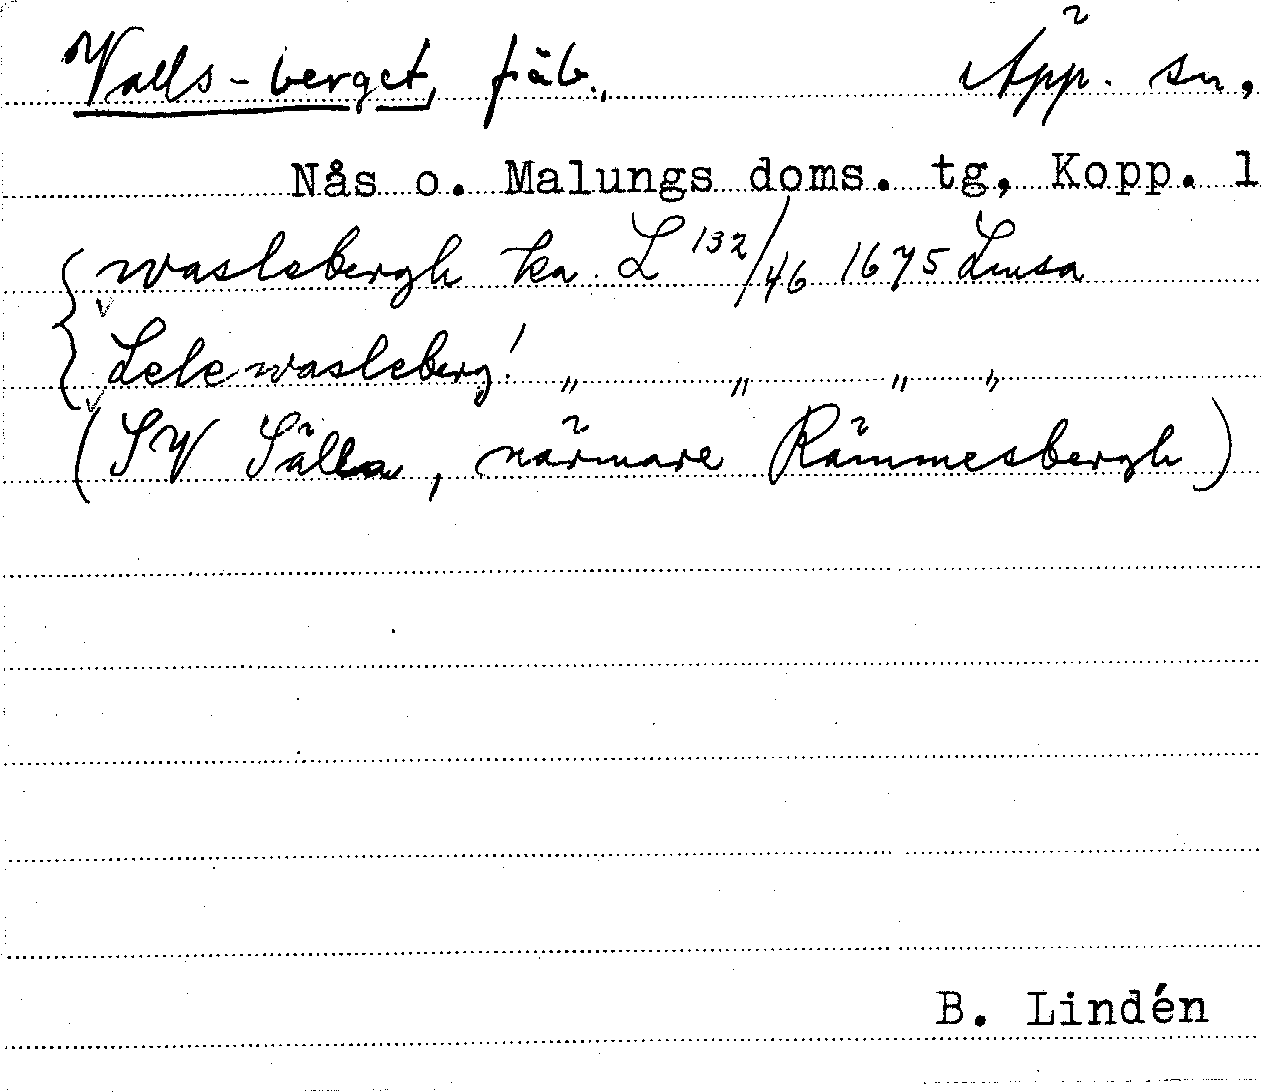 Valls-berget, fäb., Äpp. sn,
Nås o. Malungs doms. tg, Kopp. l
waslebergh ka. L 132/46 1675 Limsa
Lelewasleberg! " " " "
(SV Sälla, närmare Rämmesbergh)
B. Lindén